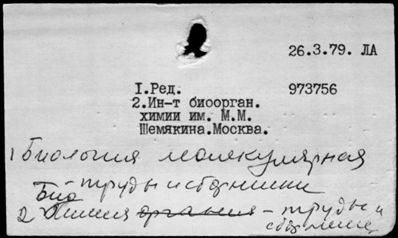 26.3.79. ЛА
I.Ред. 973756
2.Ин-т биоорган.
химии им. М.М.
Шемякина.Москва.
1 Биология молекулярная
- труды и сборники
2 Биохимия органич - труды и
сборники